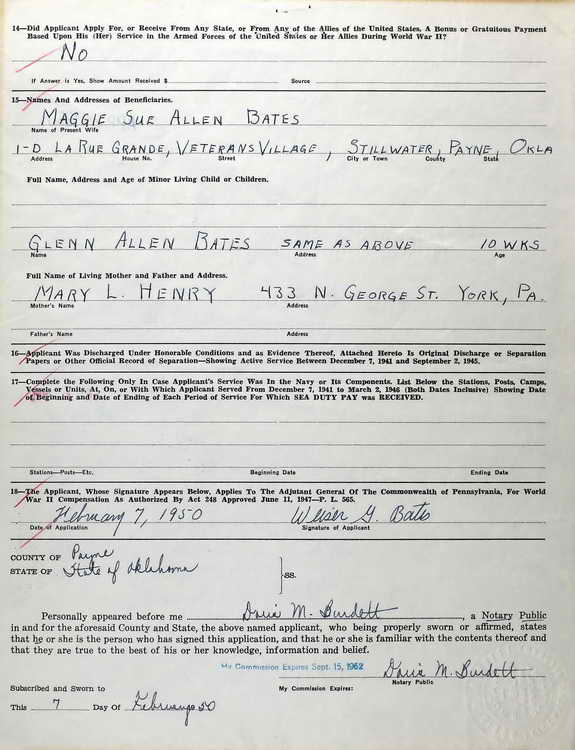 14—Did Applicant Apply For, or Receive From Any State, or From Any of the Allies of the United States, A Bonus or Gratuitous Payment
Based Upon His (Her) Service in the Armed Forces of the United States or Her Allies During World War II?
No
If Answer is Yes, Show Amount Received $ Source
15—Names And Addresses of Beneficiaries.
MAGGIE SUE ALLEN BATES
Name of Present Wife
1-D LA RUE GRANDE, VETERANS VILLAGE, STILLWATER, PAYNE, OKLA
Address House No. Street City or Town County State
Full Name, Address and Age of Minor Living Child or Children.
GLENN ALLEN BATES SAME AS ABOVE 10 WKS
Name Address Age
Full Name of Living Mother and Father and Address.
MARY L. HENRY 433 N. GEORGE ST. YORK, PA.
Mother's Name Address
Father's Name Address
16—Applicant Was Discharged Under Honorable Conditions and as Evidence Thereof, Attached Hereto Is Original Discharge or Separation
Papers or Other Official Record of Separation—Showing Active Service Between December 7, 1941 and September 2, 1945.
17—Complete the Following Only In Case Applicant's Service Was In the Navy or Its Components. List Below the Stations, Posts, Camps,
Vessels or Units, At, On, or With Which Applicant Served From December 7, 1941 to March 2, 1946 (Both Dates Inclusive) Showing Date
of Beginning and Date of Ending of Each Period of Service For Which SEA DUTY PAY was RECEIVED.
Stations—Posts—Etc. Beginning Date Ending Date
18—The Applicant, Whose Signature Appears Below, Applies To The Adjutant General Of The Commonwealth of Pennsylvania, For World
War II Compensation As Authorized By Act 248 Approved June 11, 1947—P. L. 565.
February 7, 1950 Weiser G. Bates
Date of Application Signature of Applicant
COUNTY OF Payne
STATE OF State of Oklahoma
-ss.
Personally appeared before me Doris M. Burdett, a Notary Public
in and for the aforesaid County and State, the above named applicant, who being properly sworn or affirmed, states
that he or she is the person who has signed this application, and that he or she is familiar with the contents thereof and
that they are true to the best of his or her knowledge, information and belief.
My Commission Expires Sept. 15, 1952 Doris M. Burdett
Notary Public
Subscribed and Sworn to My Commission Expires:
This 7 Day Of February 50